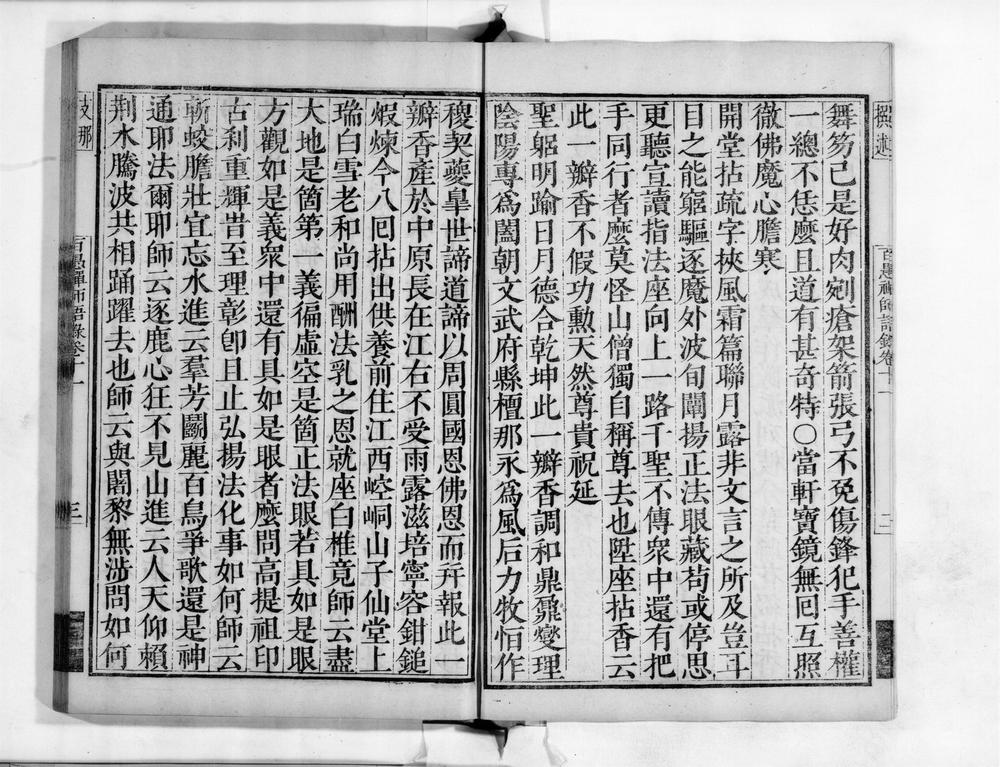 撰述
百愚禪師語錄卷十一
二
舞笏已是好肉剜瘡架箭張弓不免傷鋒犯手善權
一總不恁麼且道有甚奇特〇當軒寶鏡無回互照
徹佛魔心膽寒
開堂拈疏字挾風霜篇聯月露非文言之所及豈耳
目之能窮驅逐魔外波旬闡揚正法眼藏苟或停思
更聽宣讀指法座向上一路千聖不傳眾中還有把
手同行者麼莫怪山僧獨自稱尊去也陞座拈香云
此一瓣香不假功勳天然尊貴祝延
聖躬明踰日月德合乾坤此一瓣香調和鼎鼐燮理
陰陽專為闔朝文武府縣檀那永為風后力牧恒作
稷契夔皐世諦道諦以周圓國恩佛恩而并報此一
瓣香產於中原長在江右不受雨露滋培寧容鉗鎚
煆煉今八回拈出供養前住江西崆峒山子仙堂上
瑞白雪老和尚用酬法乳之恩就座白椎竟師云盡
大地是箇第一義徧虛空是箇正法眼若具如是眼
方觀如是義眾中還有具如是眼者麼問高提祖印
古剎重輝昔至理彰卽且止弘揚法化事如何師云
斬蛟膽壯宜忘水進云羣芳鬬麗百鳥爭歌還是神
通耶法爾耶師云逐鹿心狂不見山進云人天仰賴
荆水騰波共相踊躍去也師云與闍黎無涉問如何
支那
百愚禪師語錄卷十一
三